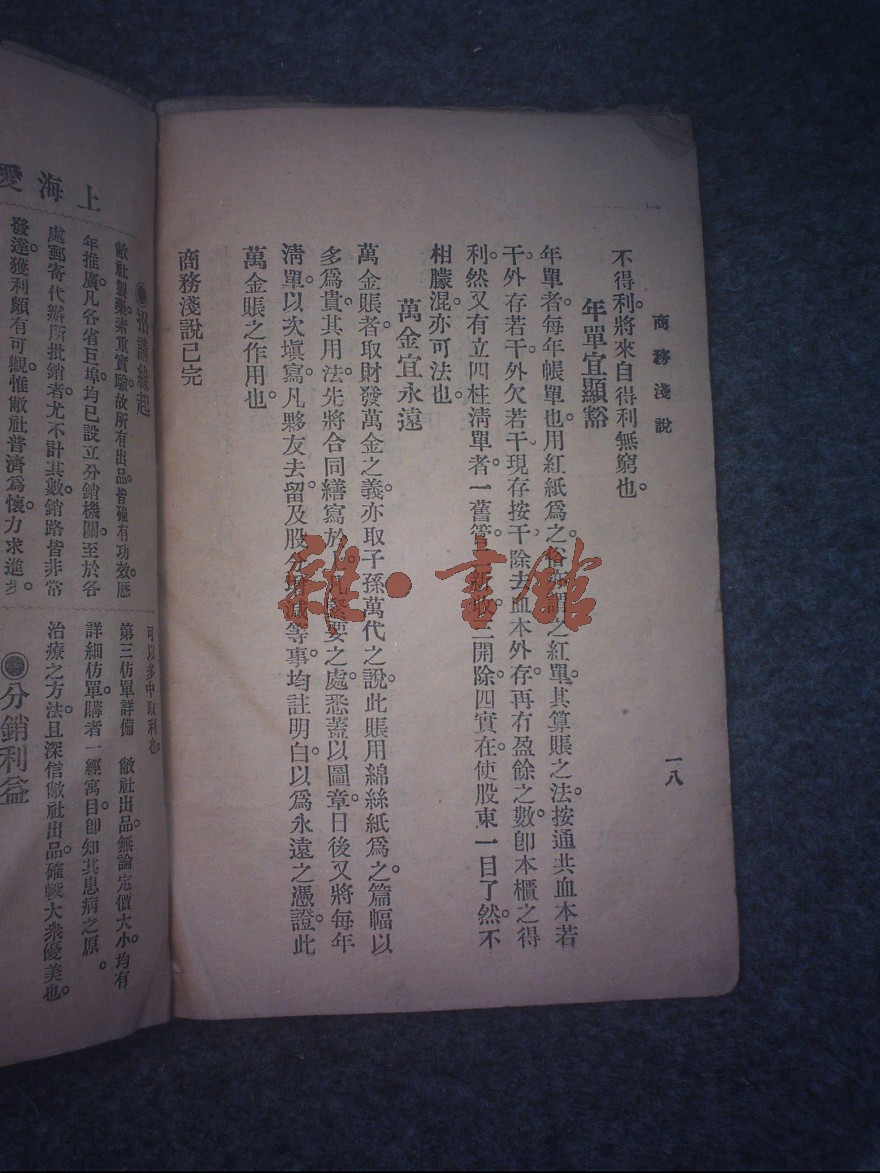 商務淺說
一八
不得利。將來自得利無窮也。
年單宜顯豁
年單者。每年帳單也。用紅紙爲之。俗所謂之紅單。其算賬之法。按通共血本若
干。外存若干。外欠若干。現存按干。除去血本外存。再有盈餘之數。卽本櫃之得
利。然又有立四柱淸單者。一舊管。二新收。三開除。四實在。使股東一目了然。不
相朦混。亦可法也。
萬金宜永遠
萬金賬者。取財發萬金之義。亦取子孫萬代之說。此賬用綿絲紙爲之。篇幅以
多爲貴。其用法先將合同繕寫於 凡緊要之處。悉蓋以圖章。日後又將每年
淸單。以次塡寫。凡夥友去留。及股分增減等事。均註明白。以爲永遠之憑證。此
萬金賬之作用也。
商務淺說已完
上海愛
招請緣起
敝社製藥。素重實驗。故所有出品。皆確有功效。歷
年推廣。凡各省巨埠。均已設立分銷機關。至於各
處郵寄代辦所批銷者。尤不計其數。銷路皆非常
發達。獲利頗有可觀。惟敝社普濟爲懷。力求進
可以多中取利也。
第三仿單詳備 敝社出品。無論定價大小。均有
詳細仿單。購者一經寓目。卽知其患病之原。
治療之方法。且深信敝社出品。確較大衆優美也。
分銷利益
雜·書館